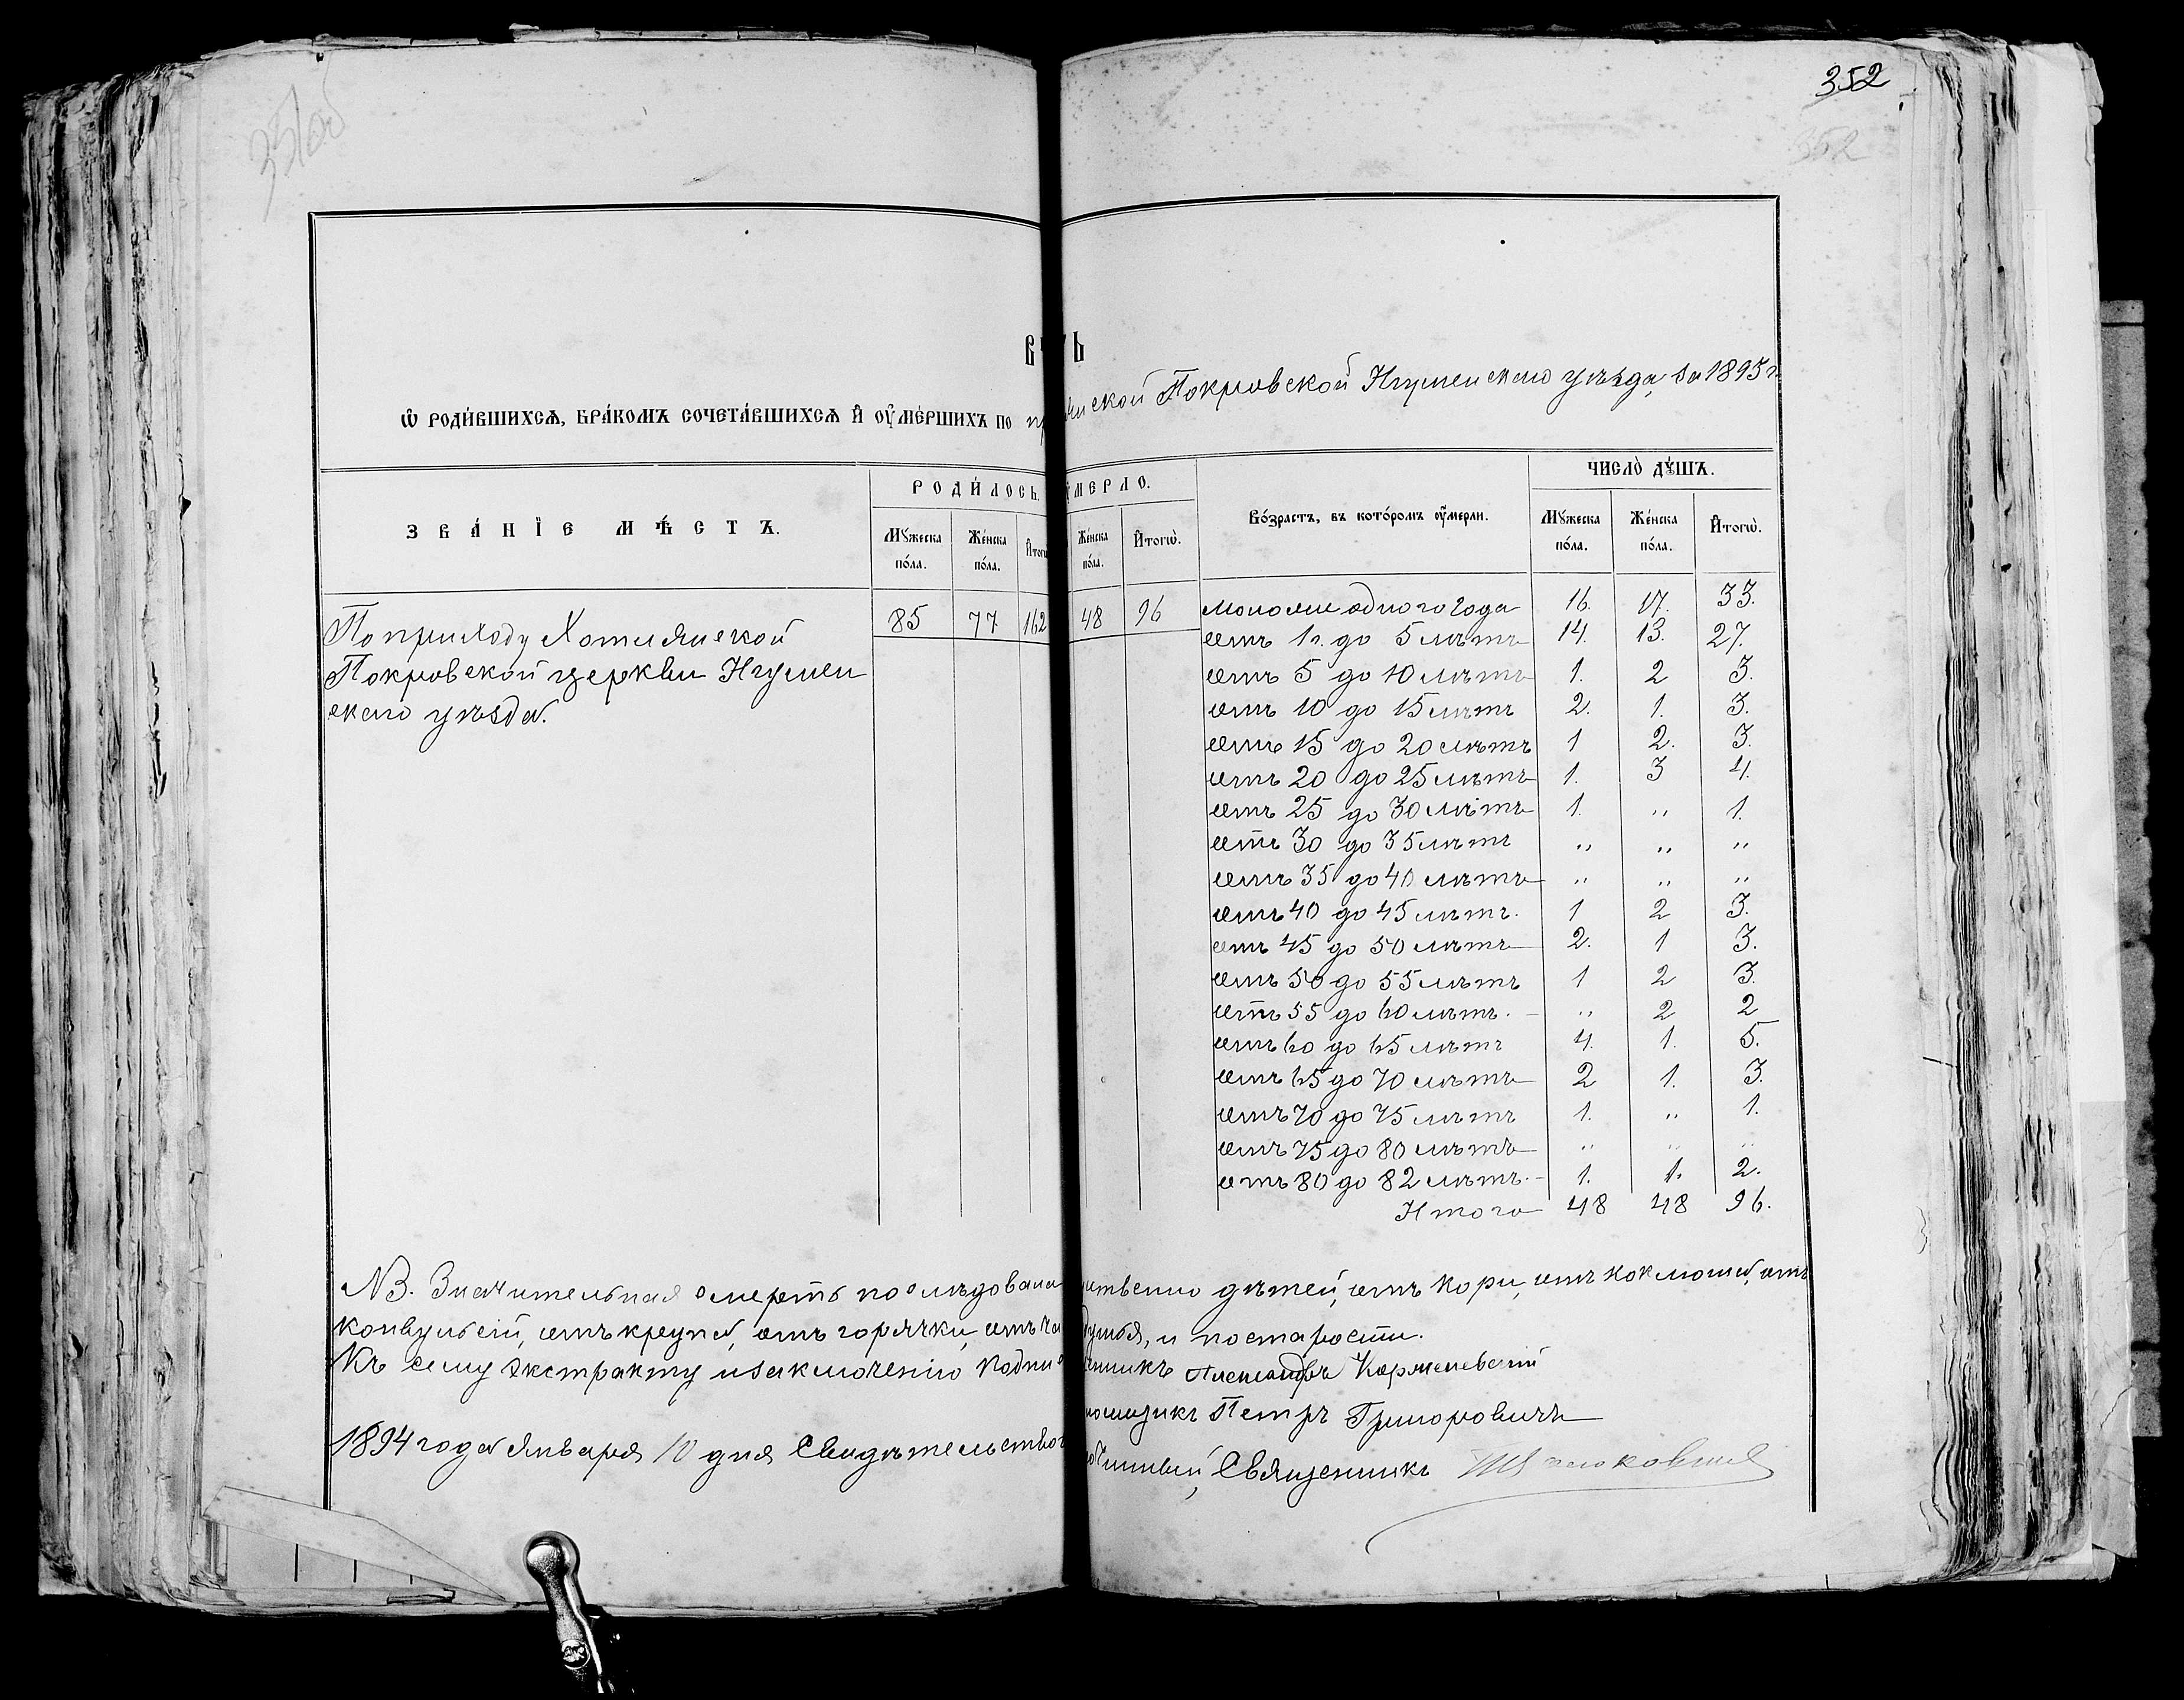 352
352
351об
Ѿ РОДИ́ВШИХСѦ, БРА́КОМЪ СОЧЕТА́ВШИХСѦ И҆ ОУ҆МЕ́РШИХЪ ПО
ской Покровской Игуменскаго уѣзда, за 1893 г.
ЗВА́НІЕ МѢ́СТЪ.
РОДИ́ЛОСЬ.
МЕРЛО.
Во́зрастъ, въ кото́ромъ оу҆мерли.
ЧИСЛО̀ ДꙊ́ШЪ.
Мꙋ́жеска по́ла.
Же́нска по́ла.
Же́нска по́ла.
И҆тогѡ̀.
Мꙋ́жеска по́ла.
Же́нска по́ла.
И҆тогѡ̀.
По приходу Хотлянской
Покровской церкви Игумен
скаго уѣзда.
85 77 162 48 96
моложе одного года 16. 17. 33.
отъ 1 г. до 5 лѣтъ 14. 13. 27.
отъ 5 до 10 лѣтъ 1. 2 3.
отъ 10 до 15 лѣтъ 2. 1. 3.
отъ 15 до 20 лѣтъ 1 2. 3.
отъ 20 до 25 лѣтъ 1. 3 4.
отъ 25 до 30 лѣтъ 1. „ 1.
отъ 30 до 35 лѣтъ „ „ „
отъ 35 до 40 лѣтъ „ „ „
отъ 40 до 45 лѣтъ. 1 2 3.
отъ 45 до 50 лѣтъ 2. 1 3.
отъ 50 до 55 лѣтъ 1 2 3.
отъ 55 до 60 лѣтъ. „ 2 2
отъ 60 до 65 лѣтъ 4. 1. 5.
отъ 65 до 70 лѣтъ 2 1. 3.
отъ 70 до 75 лѣтъ 1. „ 1.
отъ 75 до 80 лѣтъ „ „ „
отъ 80 до 82 лѣтъ. 1. 1. 2.
Итого 48 48 96.
NB. Значительная смерть послѣдовала ственно дѣтей, отъ кори, отъ коклюша, отъ
конвульсій, отъ крупа, отъ горячки, отъ ча душья, и по старости.
Къ сему экстракту и заключенію подпи енникъ Александръ
ломщикъ Петръ Григоровичъ
1894 года Января 10 дня Свидѣтельство очинный, Священникъ